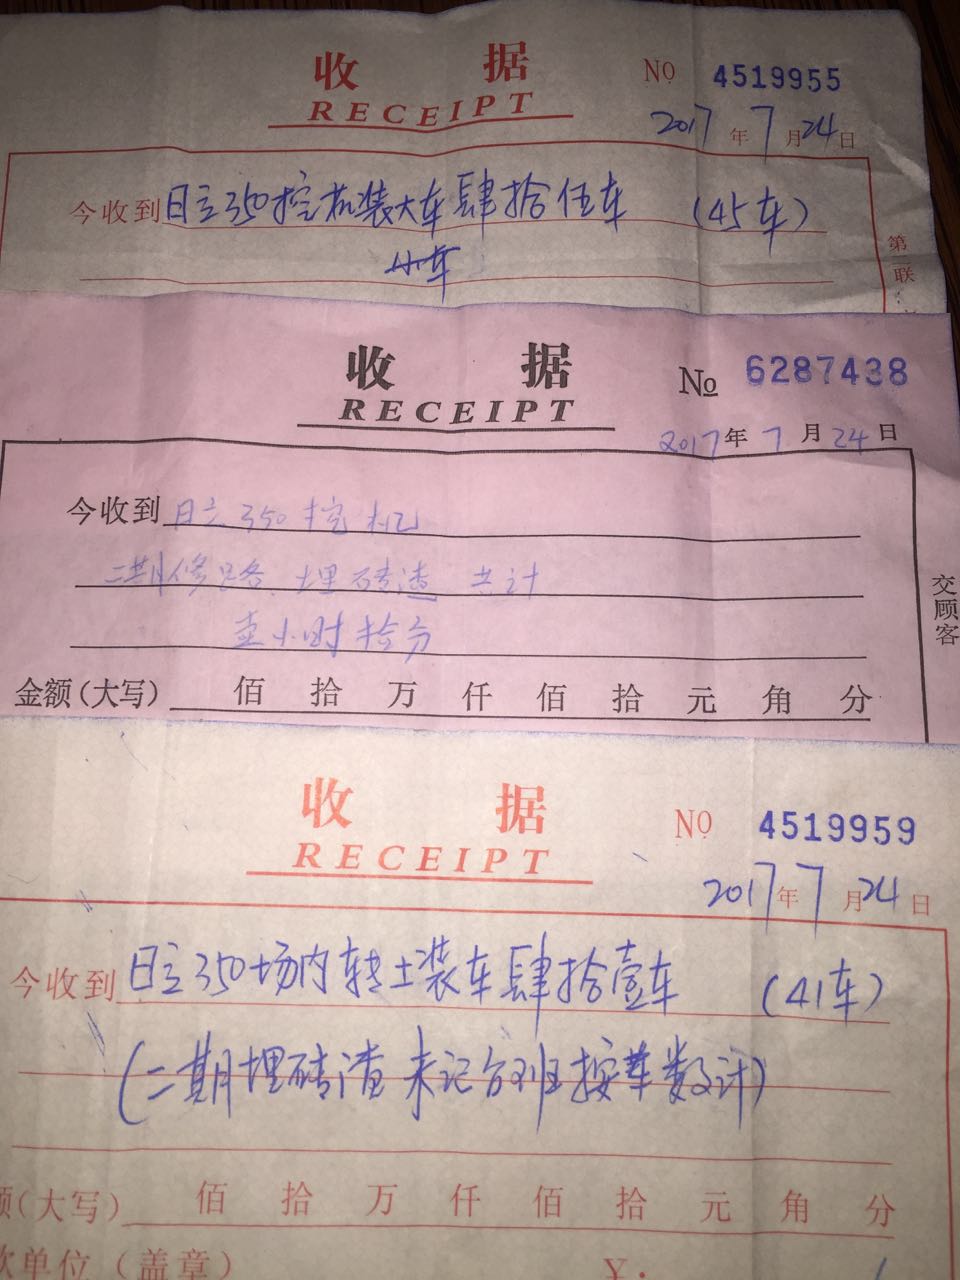 收 据
RECEIPT
No 4519955
2017年7月24日
今收到日立350挖机装大车肆拾伍车 (45车)
小车
第二联
收 据
RECEIPT
No 6287438
2017年7月24日
今收到日立350挖机
二期修路、埋砖渣 共计
壹小时拾分
金额(大写) 佰 拾 万 仟 佰 拾 元 角 分
交顾客
收 据
RECEIPT
No 4519959
2017年7月24日
今收到日立350场内转土装车肆拾壹车 (41车)
(二期埋砖渣 未记台班按车数计)
额(大写) 佰 拾 万 仟 佰 拾 元 角 分
款单位(盖章) ¥: